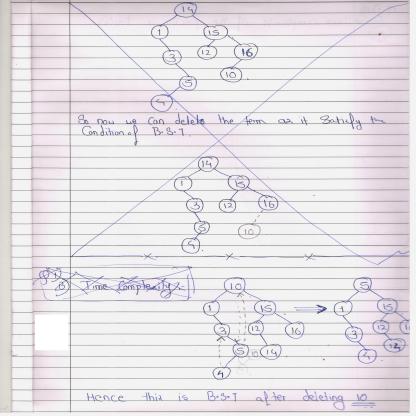 14
1 15
3 12 16
5 10
4
So now we can delete the term as it satisfy the
Condition of B.S.T.
14
1 15
3 12 16
5 10
4
Time Complexity
10 5
1 15 ⇒ 1 15
3 12 16 3 12
5 14 4
4
Hence this is B.S.T after deleting 10